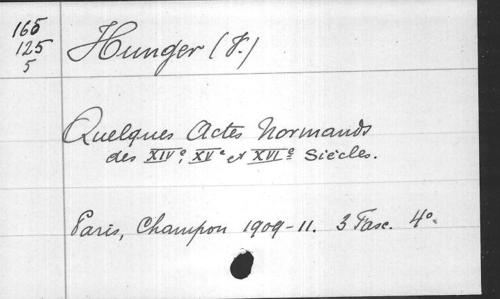 165
125
5
Hunger (V.)
Quelques Actes Normands
des XIVe, XVe et XVIe Siècles.
Paris, Champon 1909-11. 3 Fasc. 4o.